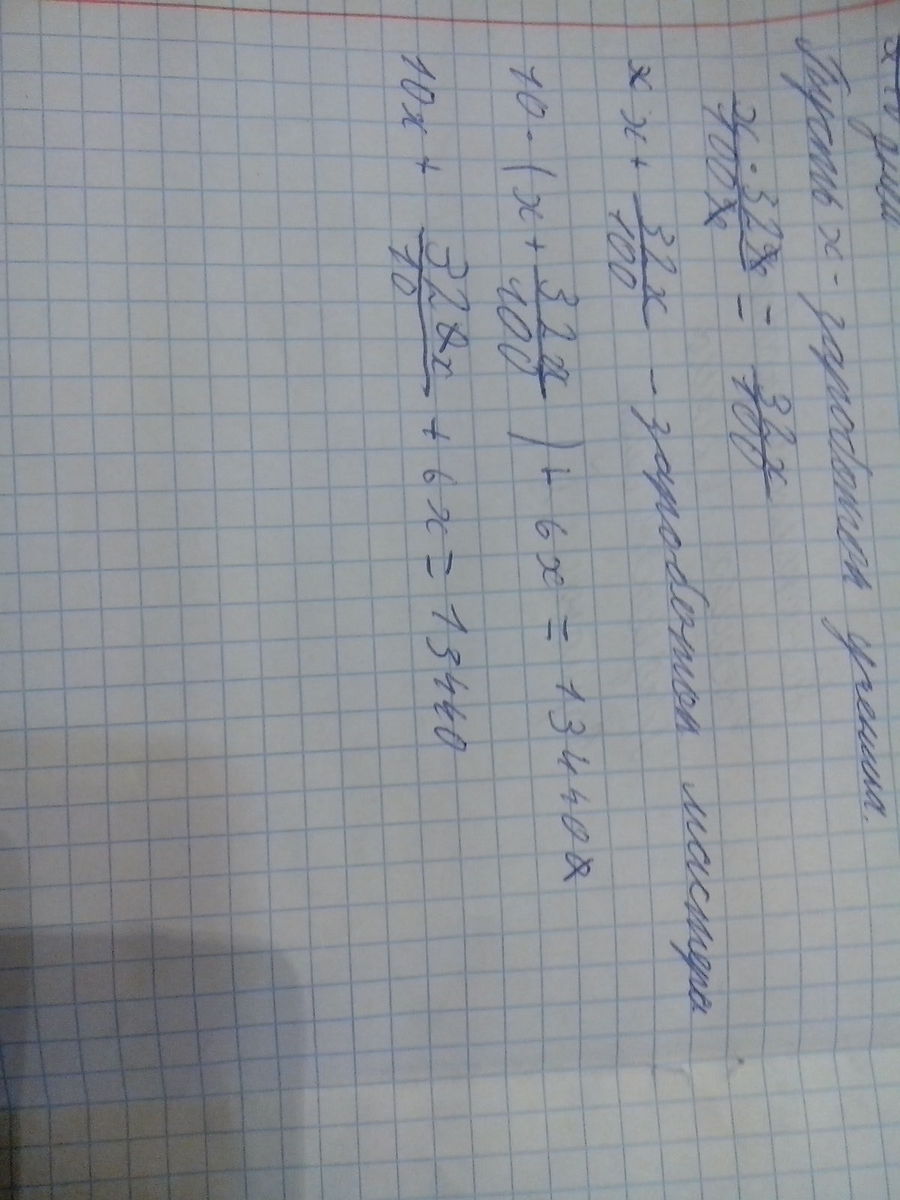 дней
Пусть x - заработок ученика.
x·32x/100x = 32x/100
x x + 32x/100 - заработок мастера
10·(x + 32x/100) + 6x = 13440
10x + 32x/10 + 6x = 13440